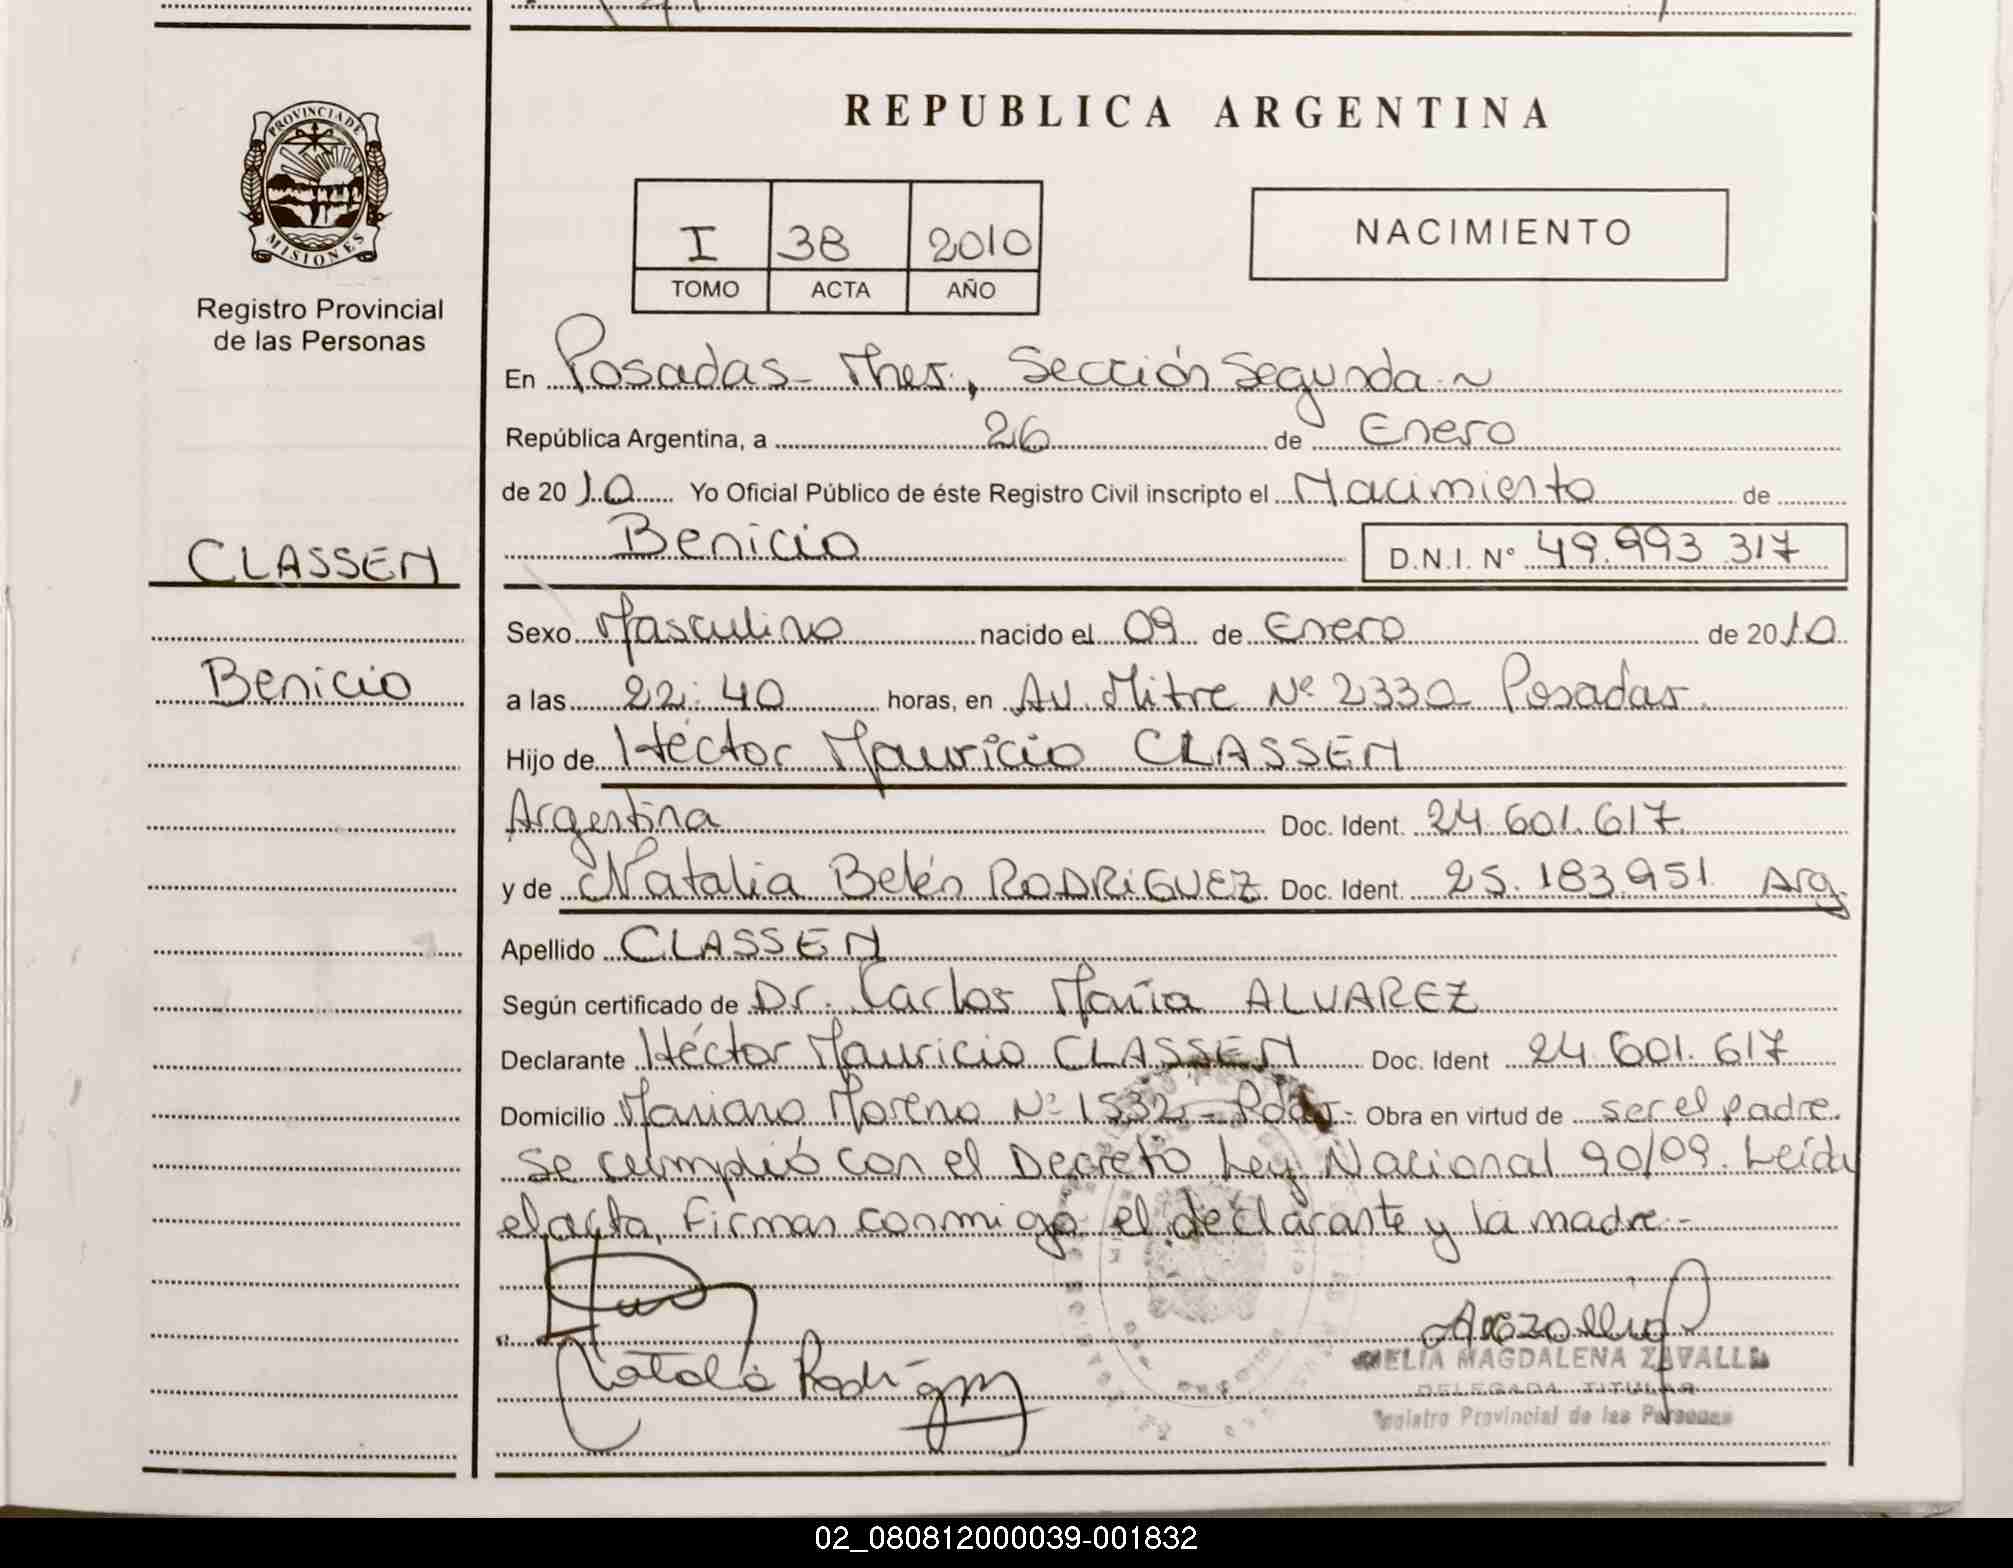 PROVINCIA DE
MISIONES
Registro Provincial
de las Personas
CLASSEN
Benicio
REPUBLICA ARGENTINA
I 38 2010
TOMO ACTA AÑO
NACIMIENTO
En Posadas - Mnes., Sección Segunda.~
República Argentina, a 26 de Enero
de 2010 Yo Oficial Público de éste Registro Civil inscripto el Nacimiento de
Benicio D.N.I. N° 49.993.317
Sexo Masculino nacido el 09 de Enero de 2010
a las 22:40 horas, en Av. Mitre N° 2330 Posadas.
Hijo de Héctor Mauricio CLASSEN
Argentina Doc. Ident. 24.601.617
y de Natalia Belén RODRIGUEZ Doc. Ident. 25.183.951 Arg.
Apellido CLASSEN
Según certificado de Dr. Carlos María ALVAREZ
Declarante Héctor Mauricio CLASSEN Doc. Ident 24.601.617
Domicilio Mariano Moreno N° 1532 - Pdas.- Obra en virtud de ser el padre.
Se cumplió con el Decreto Ley Nacional 90/09. Leída
el acta, Firman conmigo el declarante y la madre.-
Natalia Rodríguez
MAGDALENA ZAVALLA
DELEGADA TITULAR
Registro Provincial de las Personas
02_080812000039-001832